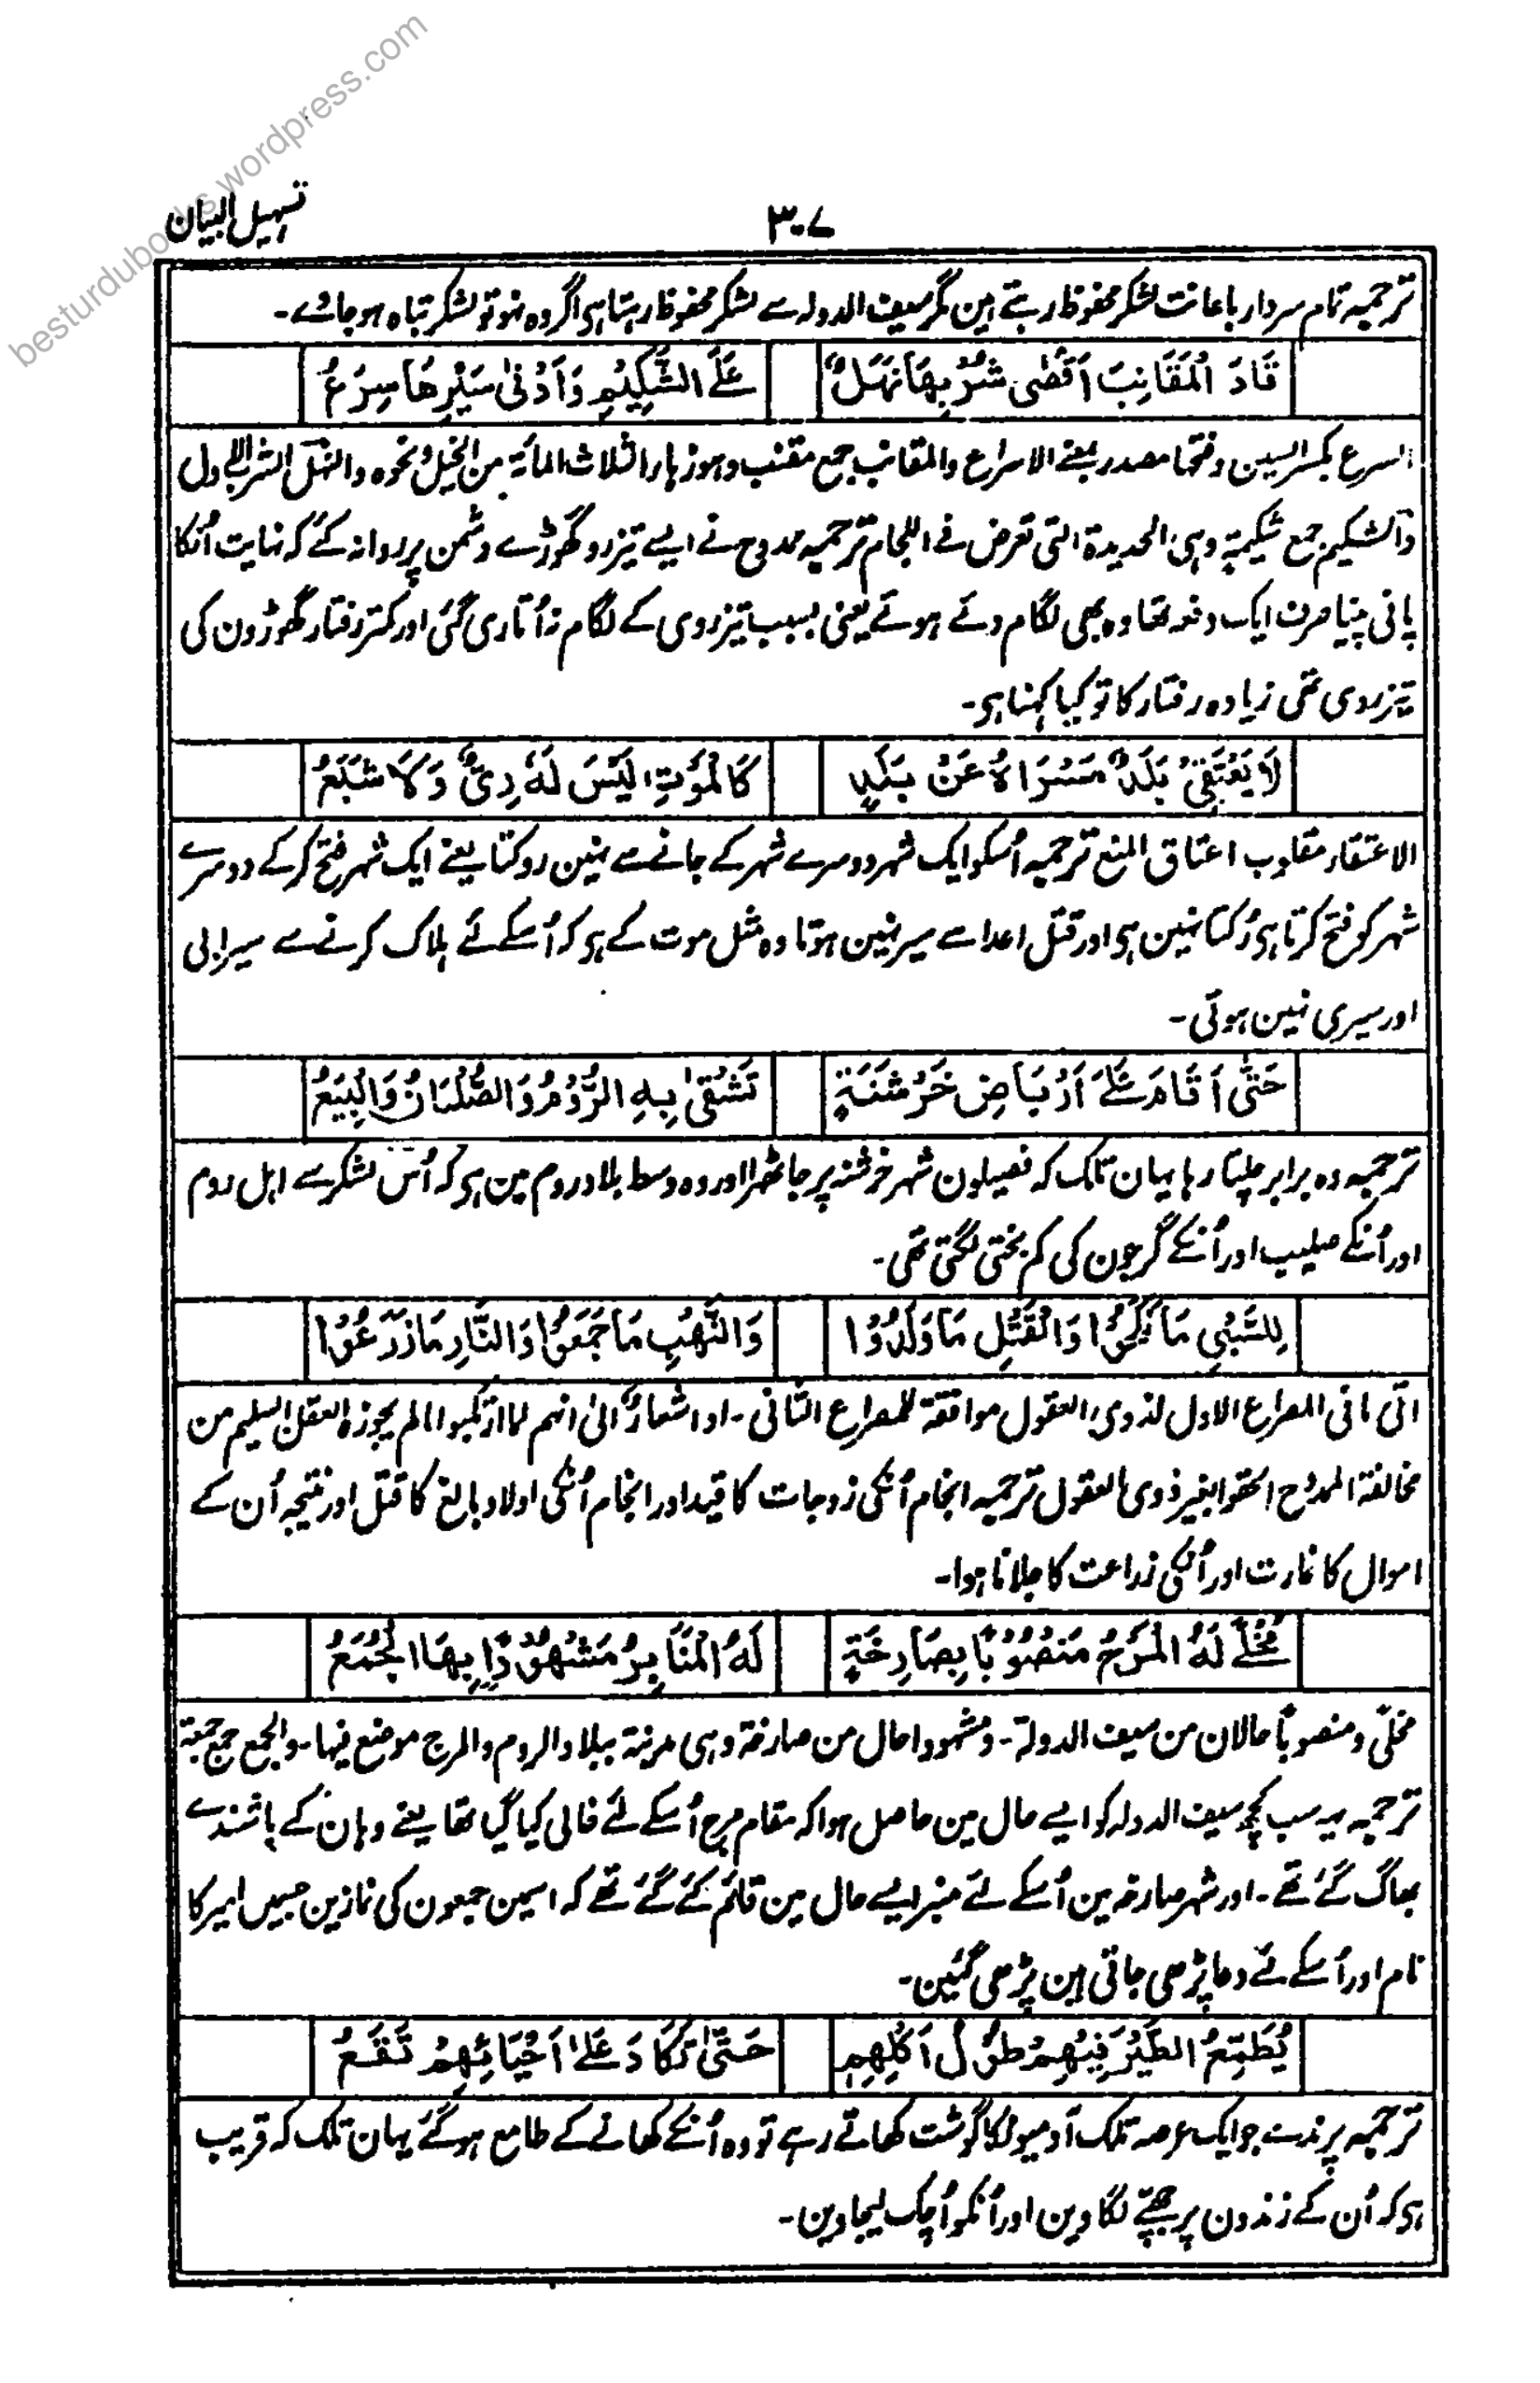 besturdubooks.wordpress.com
تسہیل البیان
۳۰۷
ترجمہ تام سردار باعانت لشکر محفوظ رہتے ہین مگر سیف الدولہ سے لشکر محفوظ رہتا ہی اگر وہ نہو تو لشکر تباہ ہو جائے۔
قَادَ الْمَقَانِبَ اَقْصٰی شُرْبِهَا نَهَلٌ عَلَی الشَّكِيْمِ وَاَدْنٰی سَيْرِهَا سِرَعُ
السرع بکسر السین وفتحہا مصدر بمعنے الاسراع والمقانب جمع مقنب وہو زہاء الثلاث المأیۃ من الخیل ونحوہ والنہل الشرب الاول
والشکیم جمع شکیمۃ وہی الحدیدۃ التی تعرض فے اللجام ترجمہ ممدوح نے ایسے تیز رو گھوڑے دشمن پر روانہ کئے کہ نہایت اُنکا
پانی پینا صرف ایک دفعہ تھا وہ بھی لگام دئے ہوئے یعنی بسبب تیز روی کے لگام نہ اُتاری گئی اور کمتر رفتار گھوڑون کی
تیز روی تھی زیادہ رفتار کا تو کیا کہنا ہی۔
لَا يَعْتَقِيْ بَلَدٌ مَسْرَاهُ عَنْ بَلَدٍ كَالْمَوْتِ لَيْسَ لَهٗ رِيٌّ وَلَا شَبَعُ
الاعتقاء مقلوب اعتاق المنع ترجمہ اُسکو ایک شہر دوسرے شہر کے جانے سے نہین روکتا یعنے ایک شہر فتح کرکے دوسرے
شہر کو فتح کرتا ہی رُکتا نہین ہی اور قتل اعدا سے سیر نہین ہوتا وہ مثل موت کے ہی کہ اُسکے لئے ہلاک کرنے سے سیرابی
اور سیری نہین ہوتی۔
حَتّٰی اَقَامَ عَلٰی اَرْبَاضِ خَرْشَنَةٍ تَشْقٰی بِهِ الرُّوْمُ وَالصُّلْبَانُ وَالْبِيَعُ
ترجمہ وہ برابر چلتا رہا یہان تک کہ فصیلون شہر خرشنہ پر جا ٹھرا اور وہ وسط بلاد روم مین ہی کہ اُس لشکر سے اہل روم
اور اُنکے صلیب اور اُنکے گرجون کی کم بختی لگتی تھی۔
لِلسَّبْيِ مَا نَكَحُوْا وَالْقَتْلِ مَا وَلَدُوْا وَالنَّهْبِ مَا جَمَعُوْا وَالنَّارِ مَا زَرَعُوْا
اتی ما فی المصراع الاول لذوی العقول موافقۃ للمصراع الثانی۔ او اشعارًا الی انہم لما ارتکبوا مالم یجوزہ العقل السلیم من
مخالفۃ الممدوح التحقوا بغیر ذوی العقول ترجمہ انجام اُنکی زوجات کا قید اور انجام اُنکی اولاد بالغ کا قتل اور نتیجہ اُن کے
اموال کا غارت اور اُنکی زراعت کا جلانا ہوا۔
مُخْلًى لَهُ الْمَرْجُ مَنْصُوْبًا بِصَارِخَةٍ لَهُ الْمَنَابِرُ مَشْهُوْدًا بِهَا الْجُمَعُ
مخلّی ومنصوبًا حالان من سیف الدولۃ۔ ومشہودا حال من صارخۃ وہی مدینۃ ببلاد الروم والمرج موضع فیہا۔ والجمع جمع جمعۃ
ترجمہ یہ سب کچھ سیف الدولہ کو ایسے حال مین حاصل ہوا کہ مقام مرج اُسکے لئے خالی کیا گیا تھا یعنے وہان کے باشندے
بھاگ گئے تھے۔ اور شہر صارخہ مین اُسکے لئے منبر ایسے حال مین قائم کئے گئے تھے کہ اسمین جمعون کی نمازین جسمین امیر کا
نام اور اُسکے لئے دعا پڑھی جاتی ہین پڑھی گئین۔
يُطَمِّعُ الطَّيْرَ فِيْهِمْ طُوْلُ اَكْلِهِمِ حَتّٰی تَكَادَ عَلٰی اَحْيَائِهِمْ تَقَعُ
ترجمہ پرندے جو ایک عرصہ تلک آدمیونکا گوشت کھاتے رہے تو وہ اُنکے کھانے کے طامع ہوگئے یہان تلک کہ قریب
ہی کہ اُن کے زندون پر جھپٹے لگاوین اور اُنکو اُچک لیجاوین۔